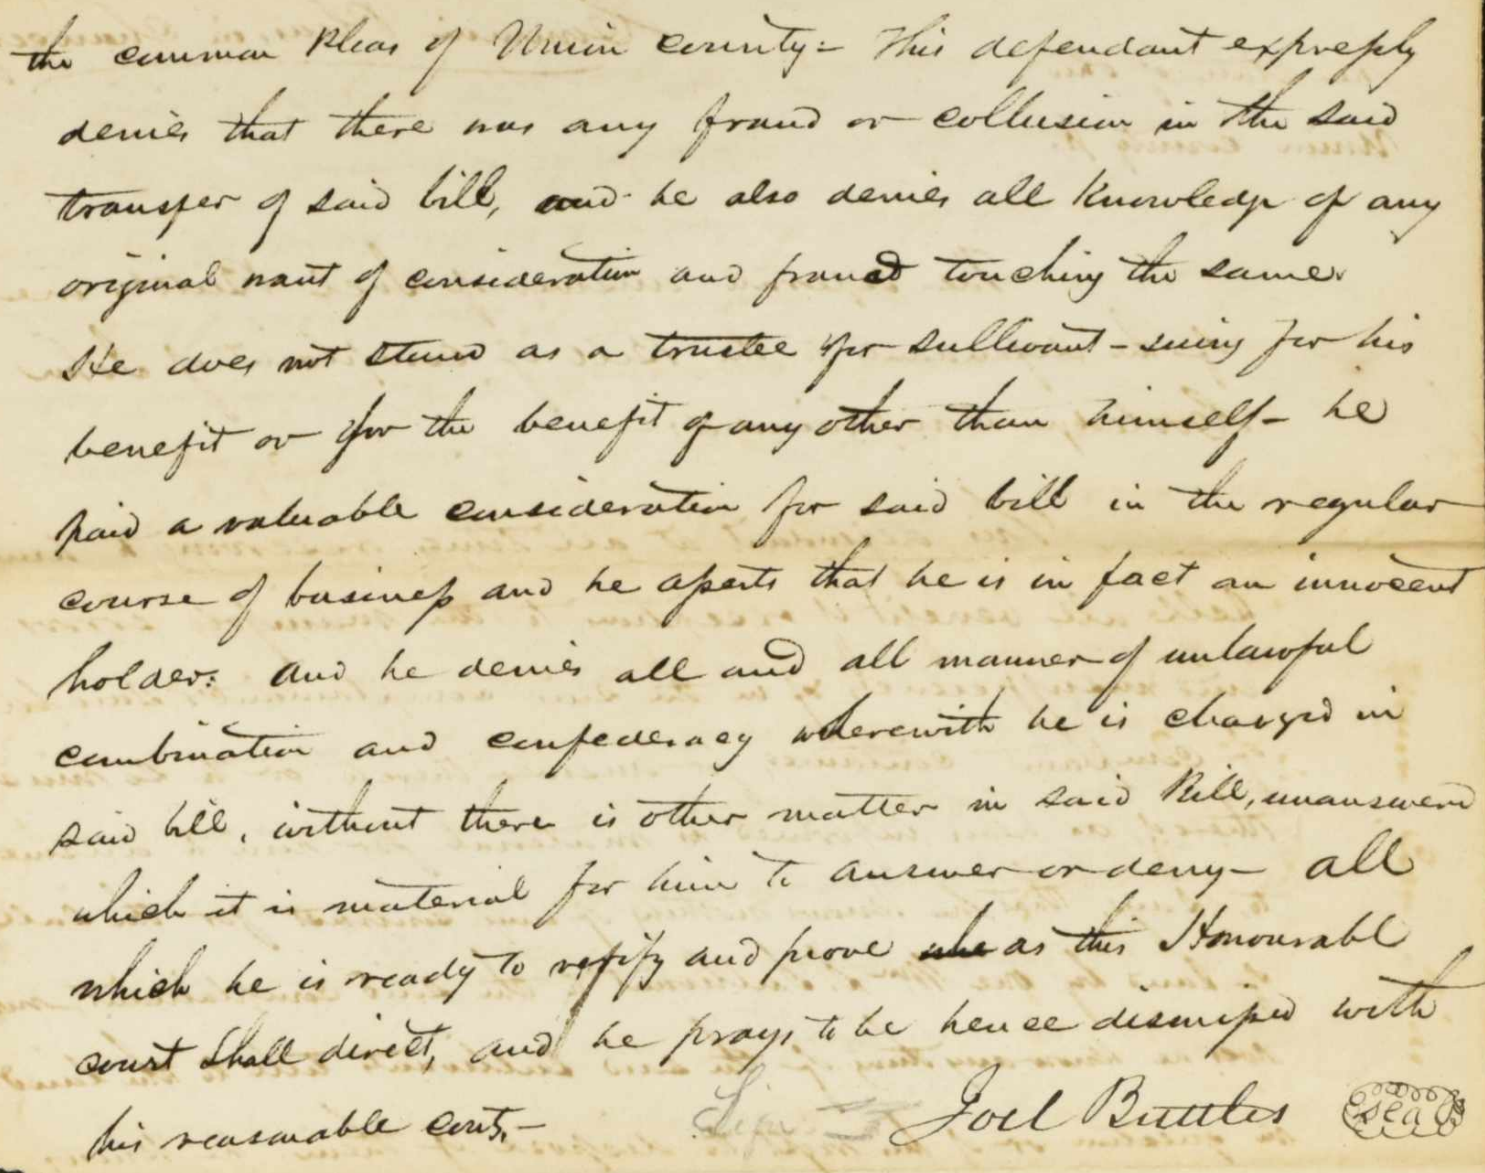 the common Pleas of Union county = This defendant expressly
denies that there was any fraud or collusion in the said
transfer of said bill, and he also denies all knowledge of any
original want of consideration and fraud touching the same.
He does not stand as a trustee for sullivant - suing for his
benefit or for the benefit of any other than himself - he
paid a valuable consideration for said bill in the regular
course of business and he asserts that he is in fact an innocent
holder: and he denies all and all manner of unlawful
combination and confederacy wherewith he is charged in
said bill, without there is other matter in said Bill, unanswerd
which it is material for him to answer or deny - all
which he is ready to verify and prove as this Honourabl
court shall direct, and he prays to be hence dismissed with
his reasonable costs, -
Joel Buttles seal